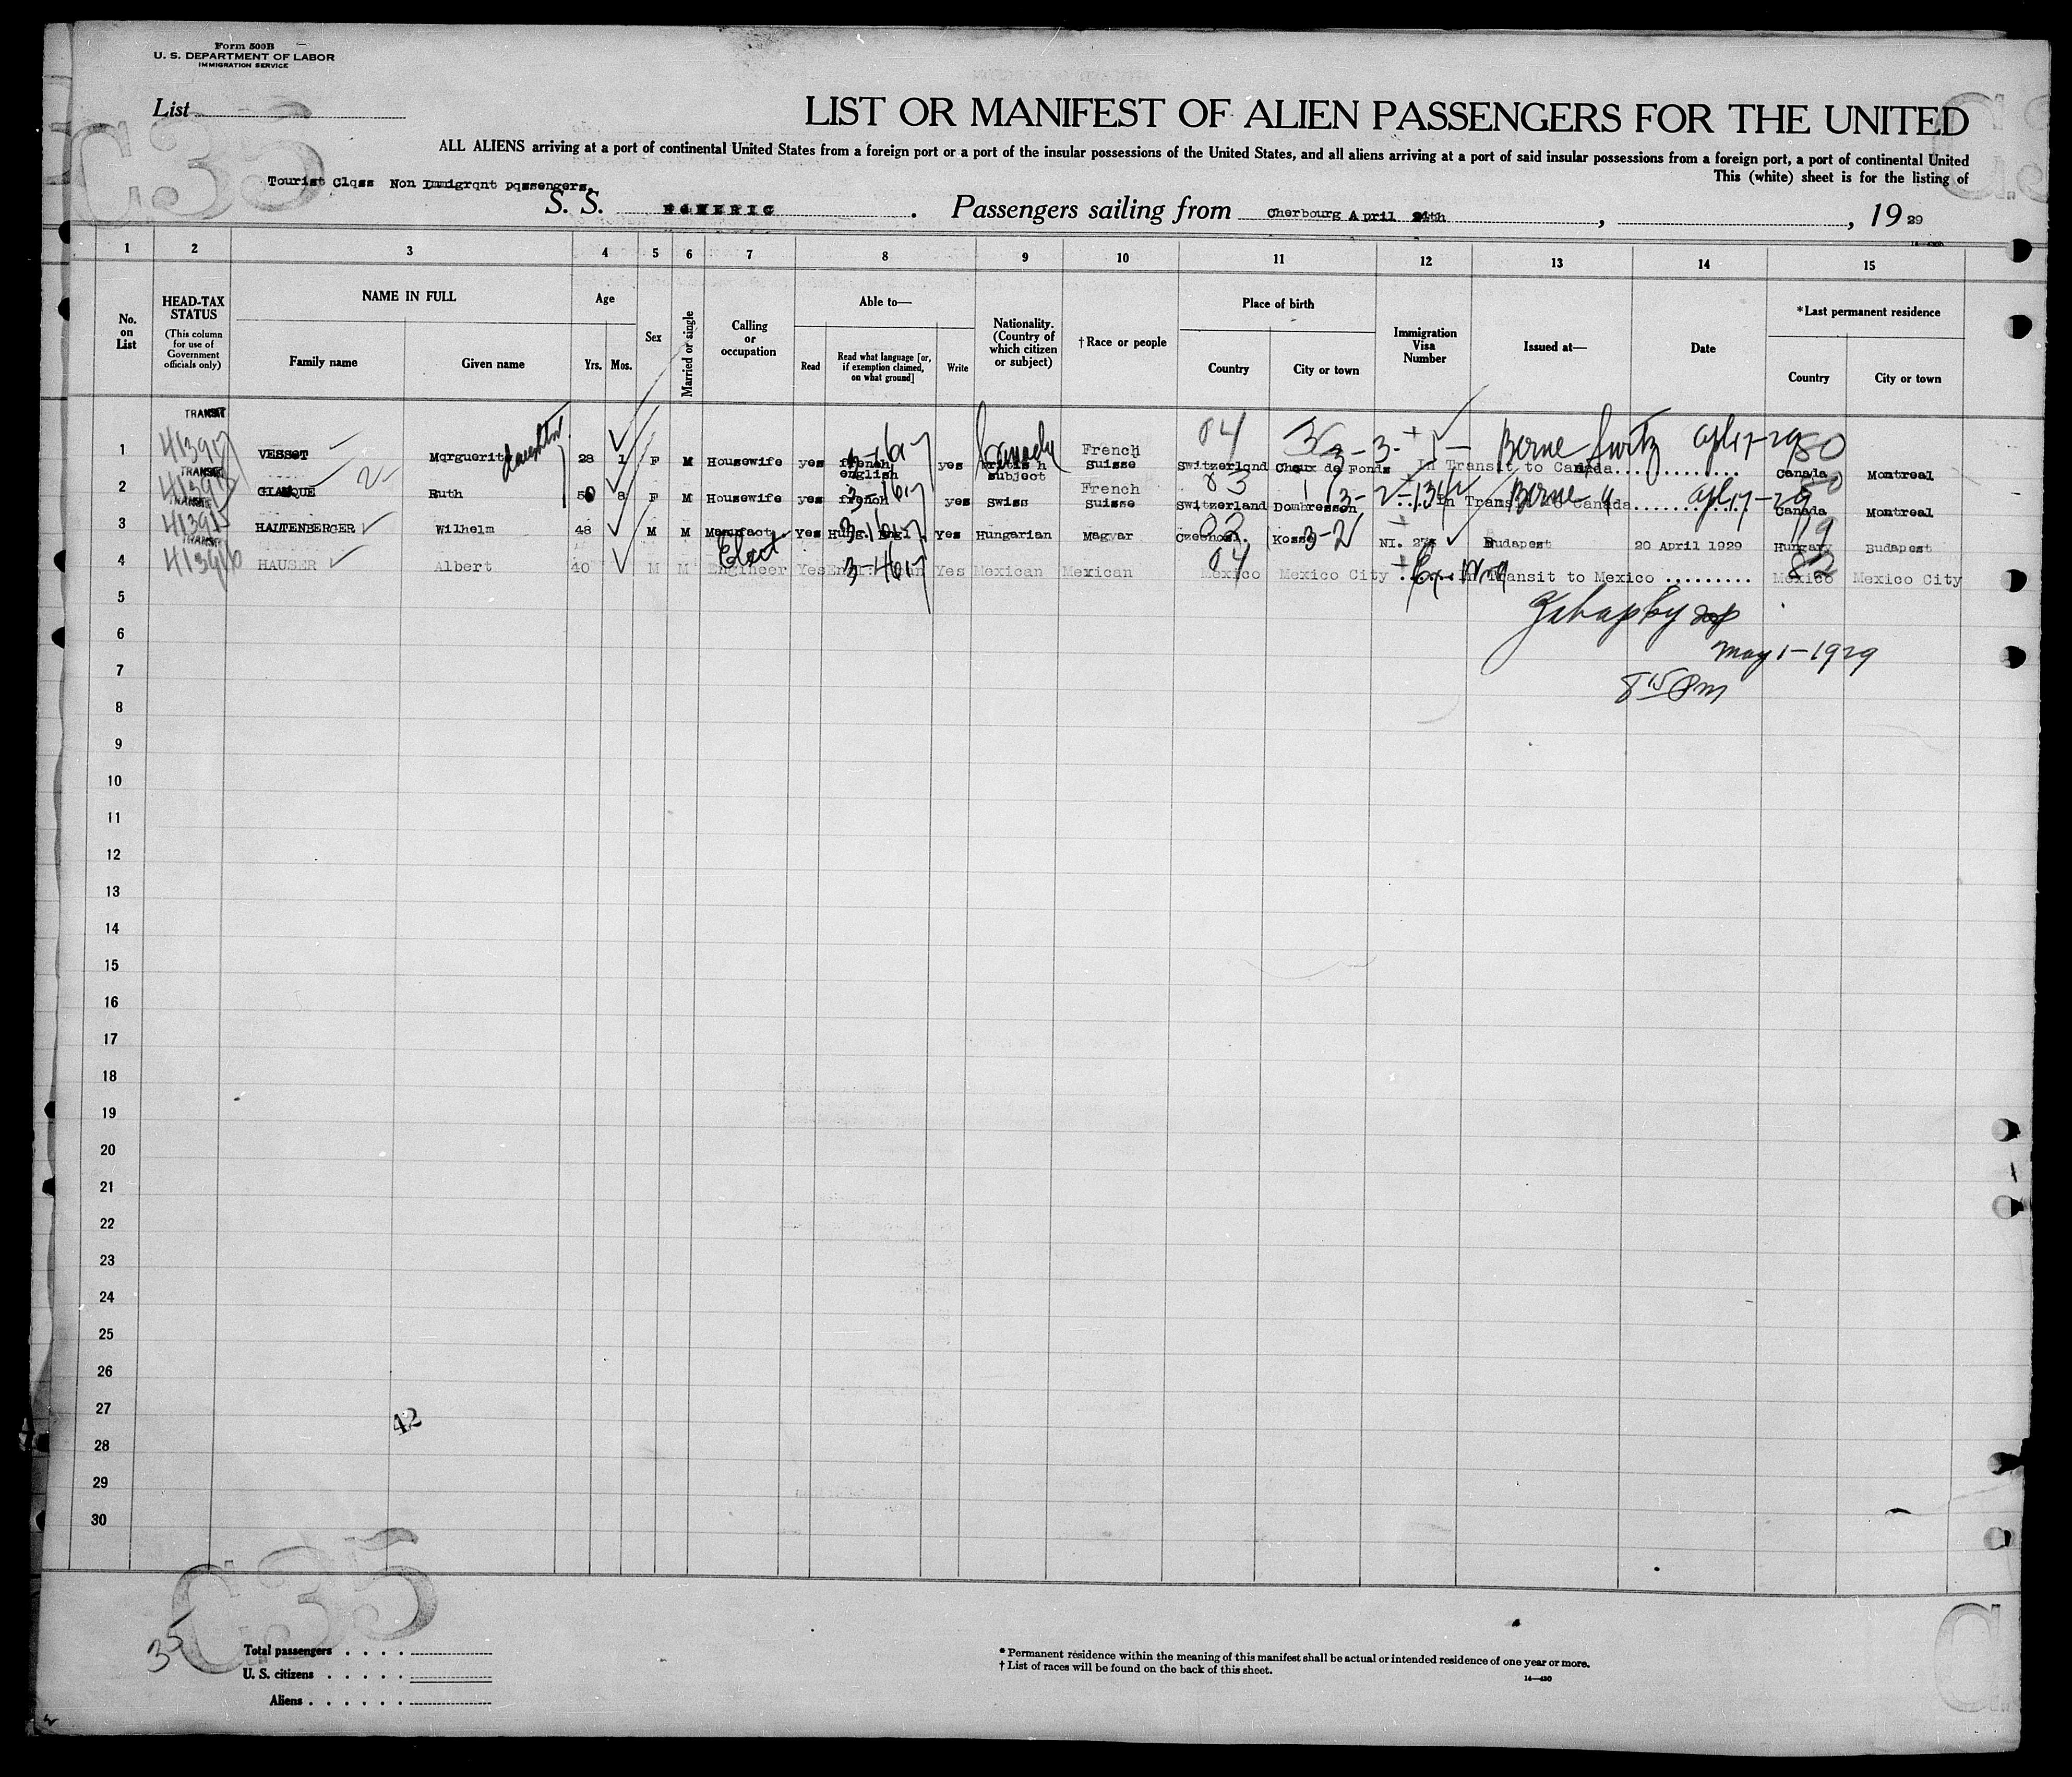 Form 500B
U. S. DEPARTMENT OF LABOR
IMMIGRATION SERVICE
List
C35
LIST OR MANIFEST OF ALIEN PASSENGERS FOR THE UNITED
ALL ALIENS arriving at a port of continental United States from a foreign port or a port of the insular possessions of the United States, and all aliens arriving at a port of said insular possessions from a foreign port, a port of continental United
Tourist Class Non Immigrant passengers.
This (white) sheet is for the listing of
S. S. . Passengers sailing from Cherbourg April 24th , , 19 29
1 2 3 4 5 6 7 8 9 10 11 12 13 14 15
No. on List
HEAD-TAX STATUS
(This column for use of Government officials only)
NAME IN FULL
Family name
Given name
Age
Yrs. Mos.
Sex
Married or single
Calling or occupation
Able to—
Read
Read what language [or, if exemption claimed, on what ground]
Write
Nationality. (Country of which citizen or subject)
†Race or people
Place of birth
Country
City or town
Immigration Visa Number
Issued at—
Date
*Last permanent residence
Country
City or town
TRANSIT
1 VESSOT Marguerite daughter 28 1 F M Housewife yes french english yes British subject Canada French Suisse Switzerland Chaux de Fonds In Transit to Canada Berne Switz Apl 17-29 Canada Montreal
TRANSIT
2 GIAUQUE Ruth 50 8 F M Housewife yes french yes Swiss French Suisse Switzerland Dombresson In Transit to Canada Berne Apl 17-29 Canada Montreal
TRANSIT
3 HALTENBERGER Wilhelm 48 M M Manufact. Yes Hung. Engl. Yes Hungarian Magyar NI. Budapest 20 April 1929 Hungary Budapest
TRANSIT
4 HAUSER Albert 40 M M Elect Engineer Yes Yes Mexican Mexican Mexico Mexico City In Transit to Mexico ......... Mexico Mexico City
5
6
May 1-1929
7
8 15 Pm
8
9
10
11
12
13
14
15
16
17
18
19
20
21
22
23
24
25
26
27
42
28
29
30
C35
35
Total passengers
U. S. citizens
Aliens
* Permanent residence within the meaning of this manifest shall be actual or intended residence of one year or more.
† List of races will be found on the back of this sheet.
14—430